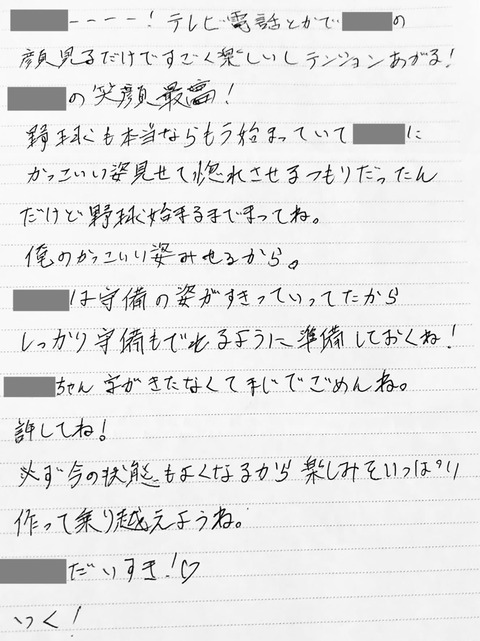 ーーーー！テレビ電話とかで の
顔見るだけですごく楽しいしテンションあがる！
の笑顔最高！
野球も本当ならもう始まっていて に
かっこいい姿見せて惚れさせるつもりだったん
だけど野球始まるまでまってね。
俺のかっこいい姿みせるから。
は守備の姿がすきっていってたから
しっかり守備もでれるように準備しておくね！
ちゃん字がきたなくてまじでごめんね。
許してね！
必ず今の状態もよくなるから楽しみをいっぱい
作って乗り越えようね。
だいすき！♡
いく！